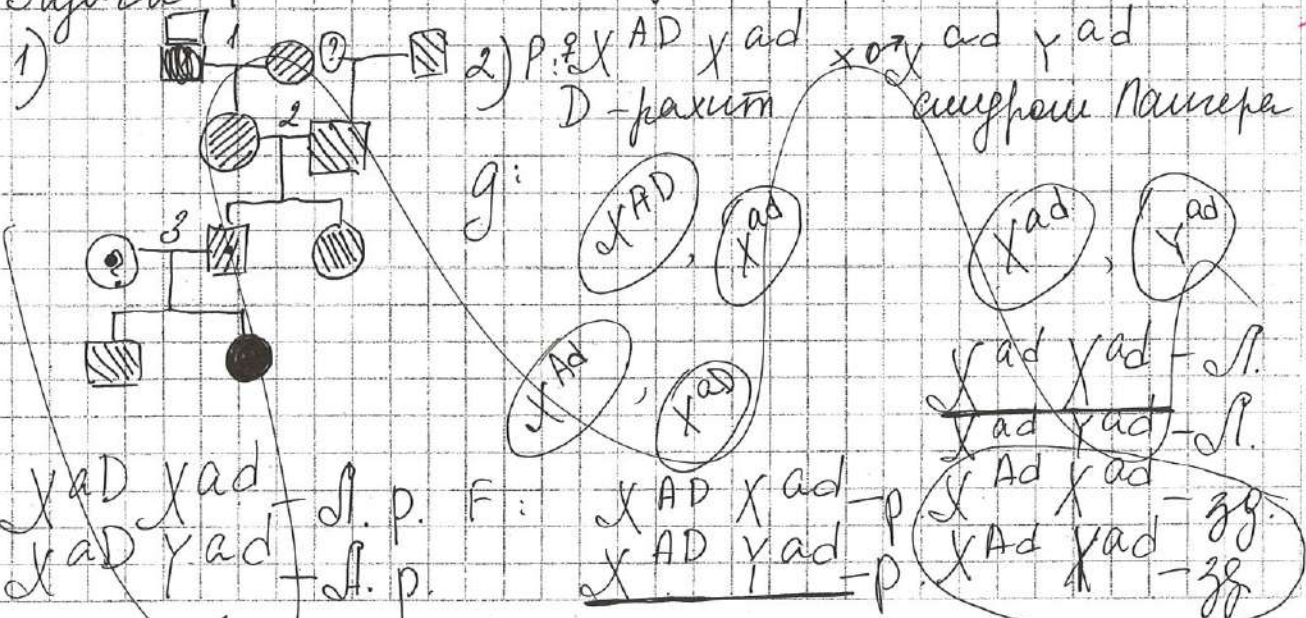 1)
1
2
3
2) P: ♀ X^AD X^ad × ♂ X^ad Y^ad
D - рахит синдром Лангера
g: X^AD, X^ad X^ad, Y^ad
X^Ad, X^aD
X^ad X^ad - Л.
X^ad Y^ad - Л.
X^aD X^ad - Л. р. F: X^AD X^ad - р X^Ad X^ad - зд.
X^aD Y^ad - Л. р. X^AD Y^ad - р X^Ad Y^ad - зд